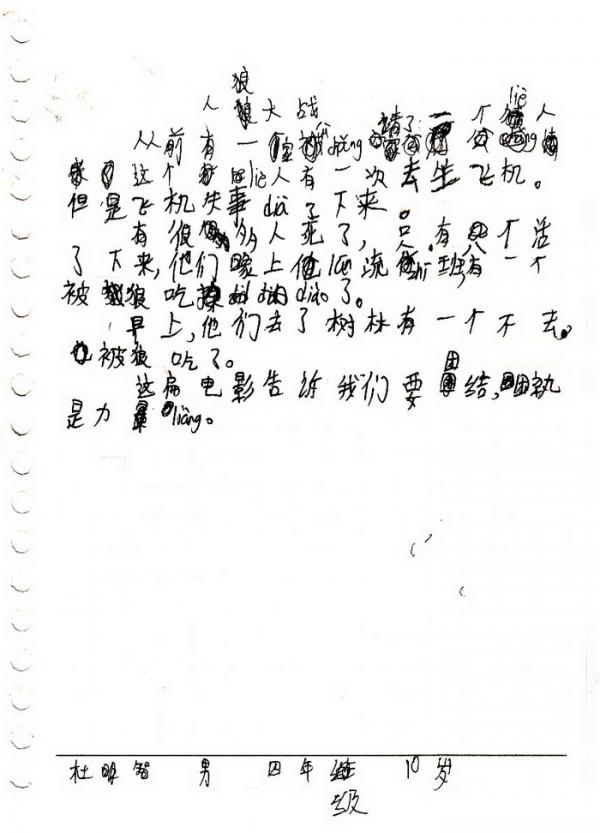 人狼大战
从前有一 请了一个liè人
这个liè人有一次去坐飞机。
但是飞机失事diào了下来。
有很多人死了,只有八个活
了下来,他们晚上他lún流 班有一个
被狼吃diào了。
早上,他们去了树林有一个不去。
也被狼吃了。
这扁电影告诉我们要团结,团执
是力量liàng。
杜明智 男 四年级 10岁